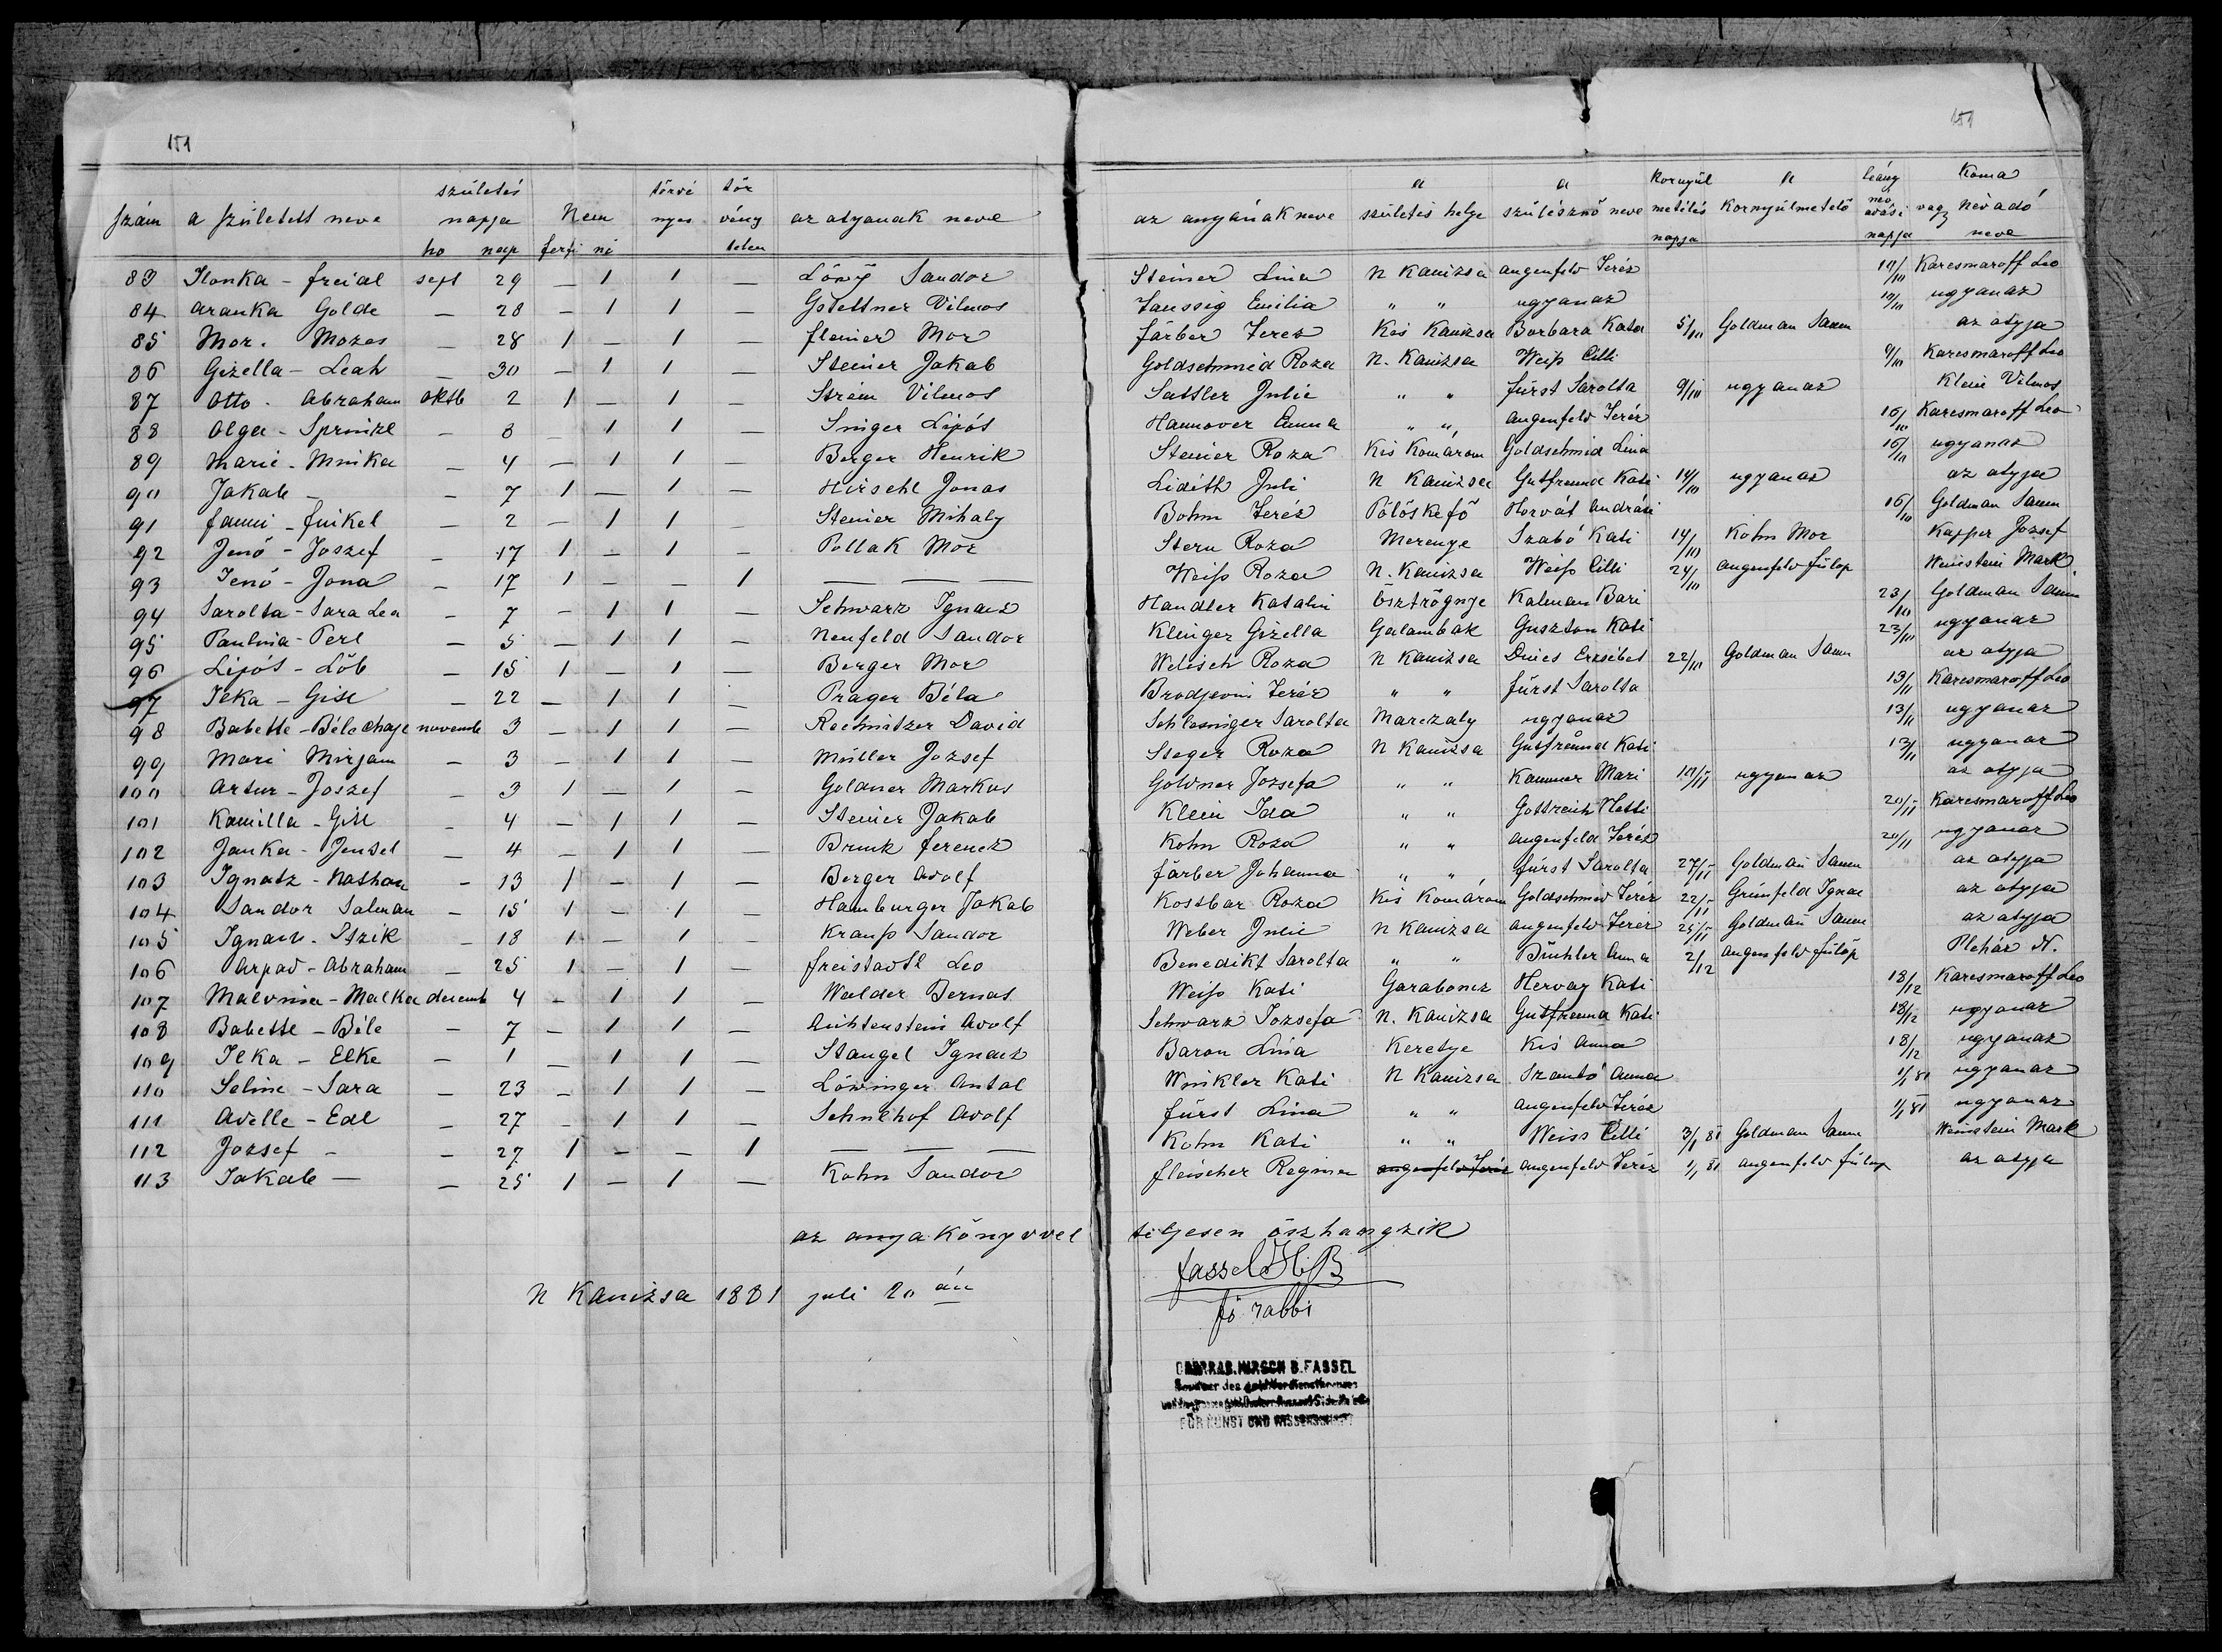 151
151
szám a született neve születés napja ho nap Nem ferfi nő törvényes törvénytelen az atyanak neve az anyának neve a születés helye a szülésznő neve kornyülmetélés napja a kornyülmetelő leány név adási napja vagy Koma névadó neve
83 Ilonka - freidl sept 29 — 1 1 — Löwy Sandor Steiner Lina N Kanizsa Augenfeld Teréz 10/10 Karesmaroff Leo
84 Aranka Golde — 28 — 1 1 — Gstettner Vilmos Taussig Emilia " " ugyanaz 10/10 ugyanaz
85 Mor. Mozes — 28 1 — 1 — Mor färber Terez Kis Kanizsa Borbara Kata 5/10 Goldman Samu az atyja
86 Gizella - Leah — 30 — 1 1 — Steiner Jakab Goldschmid Roza N. Kanizsa Weiß Cilli 9/10 Karesmaroff Leo
87 Otto. Abraham oktb 2 1 — 1 — Strém Vilmos Sattler Julie " " fürst Sarolta 9/10 ugyanaz Klein Vilmos
88 Olga - Sprinzl — 8 — 1 1 — Singer Lipós Hannover Emma " " Augenfeld Teréz 16/10 Karesmaroff Leo
89 Marie - Minka — 4 — 1 1 — Berger Henrik Steiner Roza Kis Komárom Goldschmid Lina 16/10 ugyanaz
90 Jakab — — 7 1 — 1 — Hirschl Jonas Lidith Juli N Kanizsa Gutfreund Kati 14/10 ugyanaz az atyja
91 fanni - finkel — 2 — 1 1 Steiner Mihaly Bohm Teréz Pölöskefő Horvát Andrásé 16/10 Goldman Samu
92 Jenő - Joszef — 17 1 — 1 — Pollak Mór Stern Roza Merenye Szabó Kati 14/10 Kohn Mor Kapper Jozsef
93 Jenő - Jona — 17 1 — — 1 — — — Weiß Roza N. Kanizsa Weiß Cilli 24/10 Augenfeld fülöp Weinstein Mark
94 Sarolta - Sara Lea — 7 — 1 1 — Schwarz Ignacz Handler Katalin Esztrögnye Kalman Bari 23/10 Goldman Samu
95 Paulina - Perl — 5 — 1 1 — Neufeld Sandor Klinger Gizella Galambok Guszton Kati 23/10 ugyanaz
96 Lipós - Löb — 15 1 — 1 — Berger Mor Welisch Roza N Kanizsa Dnies Erzsébet 22/10 Goldman Samu az atyja
97 Ilka - Gisl — 22 — 1 1 — Prager Béla Teréz " " fürst Sarolta 13/11 Karesmaroff Leo
98 Babette - Béle Chaje novemb 3 — 1 1 — Rechnitzer David Schlesinger Sarolta Marczaly ugyanaz 13/11 ugyanaz
99 Mari Mirjam — 3 — 1 1 — Müller Jozsef Steger Roza N Kanizsa Gutfreund Kati 13/11 ugyanaz
100 Artur - Joszef — 3 1 — 1 — Goldner Markus Goldner Jozsefa " " Kammer Mari 10/11 ugyanaz az atyja
101 Kamilla - Gisl — 4 — 1 1 — Steiner Jakab Klein Ida " " Gottreich Netti 20/11 Karesmaroff Leo
102 Janka - Jensel — 4 — 1 1 — Bruck ferencz Kohn Roza " " Augenfeld Teréz 20/11 ugyanaz
103 Ignatz - Nathan — 13 1 — 1 — Berger Adolf färber Johanna " " fürst Sarolta 27/11 Goldman Samu az atyja
104 Sandor Salman — 15 1 — 1 — Hamburger Jakab Kostbar Roza Kis Komárom Goldschmid Teréz 22/11 Grünfeld Ignac az atyja
105 Ignacz. Itzik — 18 1 — 1 — Krauß Sandor Weber Julie N Kanizsa Augenfeld Teréz 25/11 Goldman Samu az atyja
106 Arpad - Abraham — 25 1 — 1 — freistadtl Leo Benedikt Sarolta " " Büchler Anna 2/12 Augenfeld fülöp N.
107 Malvina - Malka decemb 4 — 1 1 — Walder Bernat Weiß Kati Garaboncz Hervay Kati 18/12 Karesmaroff Leo
108 Babette - Béle — 7 — 1 1 — Lichtenstein Adolf Schwarz Jozsefa N. Kanizsa Gutfreund Kati 18/12 ugyanaz
109 Ilka - Elke — 1 — 1 1 — Stangel Ignacz Baron Lina Keretye Kis Anna 18/12 ugyanaz
110 Seline - Sara — 23 — 1 1 — Löwinger Antal Winkler Kati N Kanizsa Szantó Anna 1/1 81 ugyanaz
111 Adelle - Edl — 27 — 1 1 — Schnlhof Adolf fürst Lina " " Augenfeld Teréz 1/1 81 ugyanaz
112 Jozsef — — 27 1 — — 1 — — — Kohn Kati " " Weiss Cilli 3/1 81 Goldman Samu Weinstein Mark
113 Jakab — — 25 1 — 1 — Kohn Sandor fleischer Regina Augenfeld Teréz Augenfeld Teréz 1/1 81 Augenfeld fülöp az atyja
az anyakönyvvel teljesen öszhangzik
N Kanizsa 1881 juli 20 án
fassel H. B
fő rabbi
OBERRAB. HIRSCH B. FASSEL
FÜR KUNST UND WISSENSCHAFT